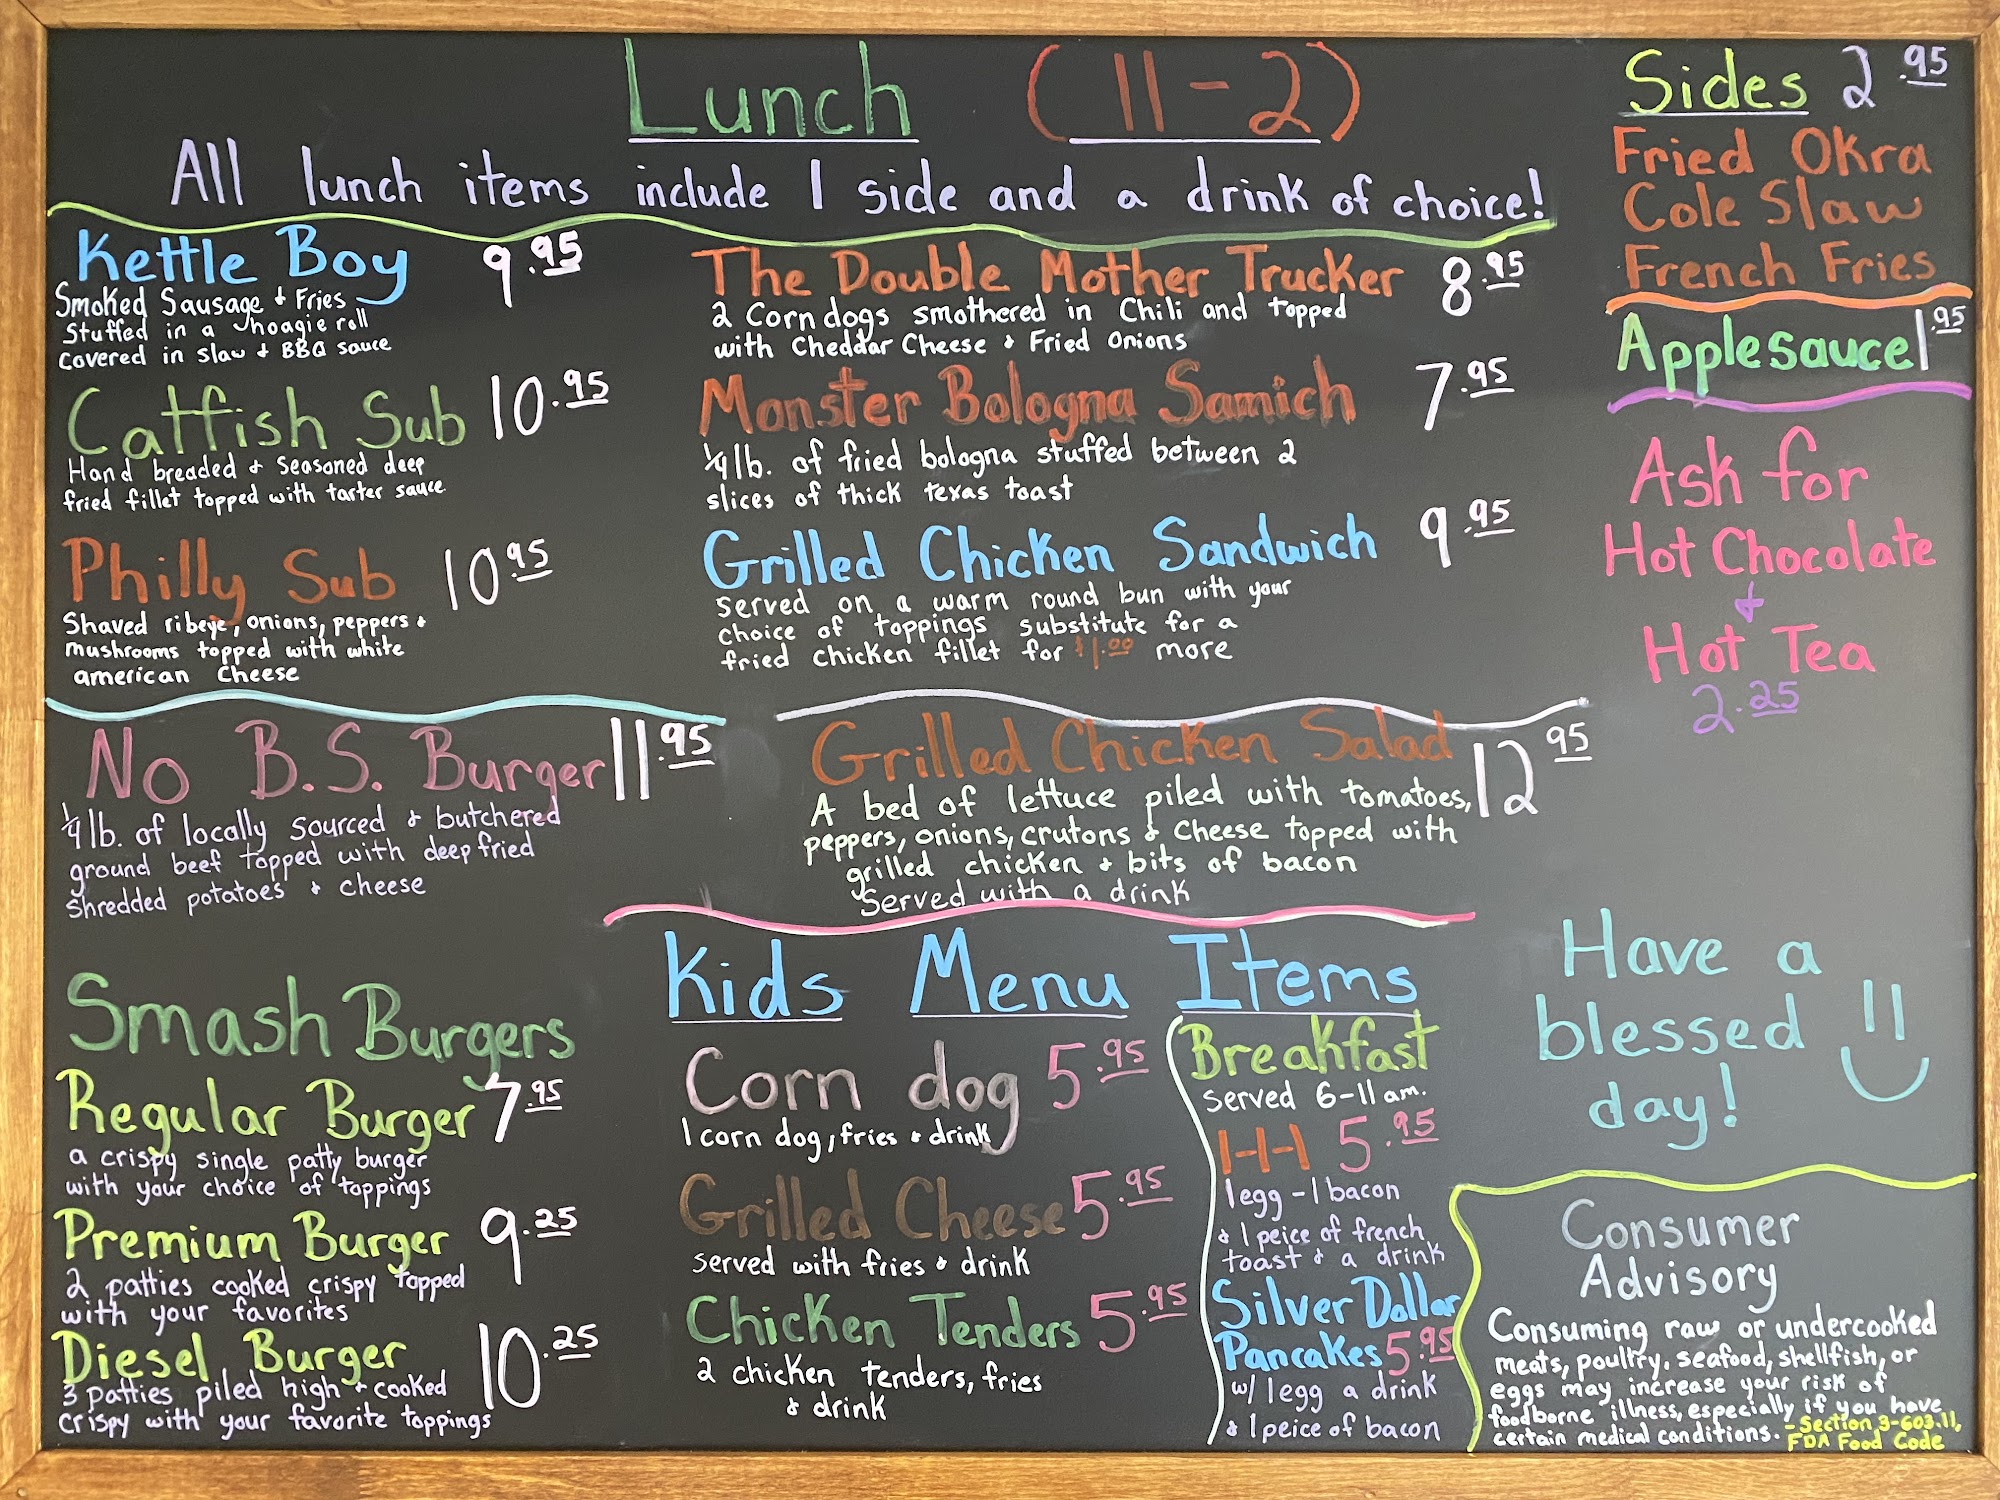 Lunch (11-2)
All lunch items include 1 side and a drink of choice!
Kettle Boy 9.95
Smoked Sausage & Fries
Stuffed in a hoagie roll
covered in slaw & BBQ sauce
Catfish Sub 10.95
Hand breaded & seasoned deep
fried fillet topped with tarter sauce
Philly Sub 10.95
Shaved ribeye, onions, peppers &
mushrooms topped with white
american cheese
The Double Mother Trucker 8.95
2 Corn dogs smothered in Chili and topped
with Cheddar Cheese & Fried Onions
Monster Bologna Samich 7.95
1/4 lb. of fried bologna stuffed between 2
slices of thick texas toast
Grilled Chicken Sandwich 9.95
served on a warm round bun with your
choice of toppings substitute for a
fried chicken fillet for $1.00 more
No B.S. Burger 11.95
1/4 lb. of locally sourced & butchered
ground beef topped with deep fried
shredded potatoes & cheese
Grilled Chicken Salad 12.95
A bed of lettuce piled with tomatoes,
peppers, onions, crutons & cheese topped with
grilled chicken & bits of bacon
Served with a drink
Smash Burgers
Regular Burger 7.95
a crispy single patty burger
with your choice of toppings
Premium Burger 9.25
2 patties cooked crispy topped
with your favorites
Diesel Burger 10.25
3 patties piled high & cooked
crispy with your favorite toppings
Kids Menu Items
Corn dog 5.95
1 corn dog, fries & drink
Grilled Cheese 5.95
served with fries & drink
Chicken Tenders 5.95
2 chicken tenders, fries
& drink
Breakfast
served 6-11 am.
1-1-1 5.95
1 egg - 1 bacon
& 1 peice of french
toast & a drink
Silver Dollar
Pancakes 5.95
w/ 1 egg a drink
& 1 peice of bacon
Sides 2.95
Fried Okra
Cole Slaw
French Fries
Applesauce 1.95
Ask for
Hot Chocolate
&
Hot Tea
2.25
Have a
blessed
day!
Consumer
Advisory
Consuming raw or undercooked
meats, poultry, seafood, shellfish, or
eggs may increase your risk of
foodborne illness, especially if you have
certain medical conditions. - Section 3-603.11,
FDA Food Code